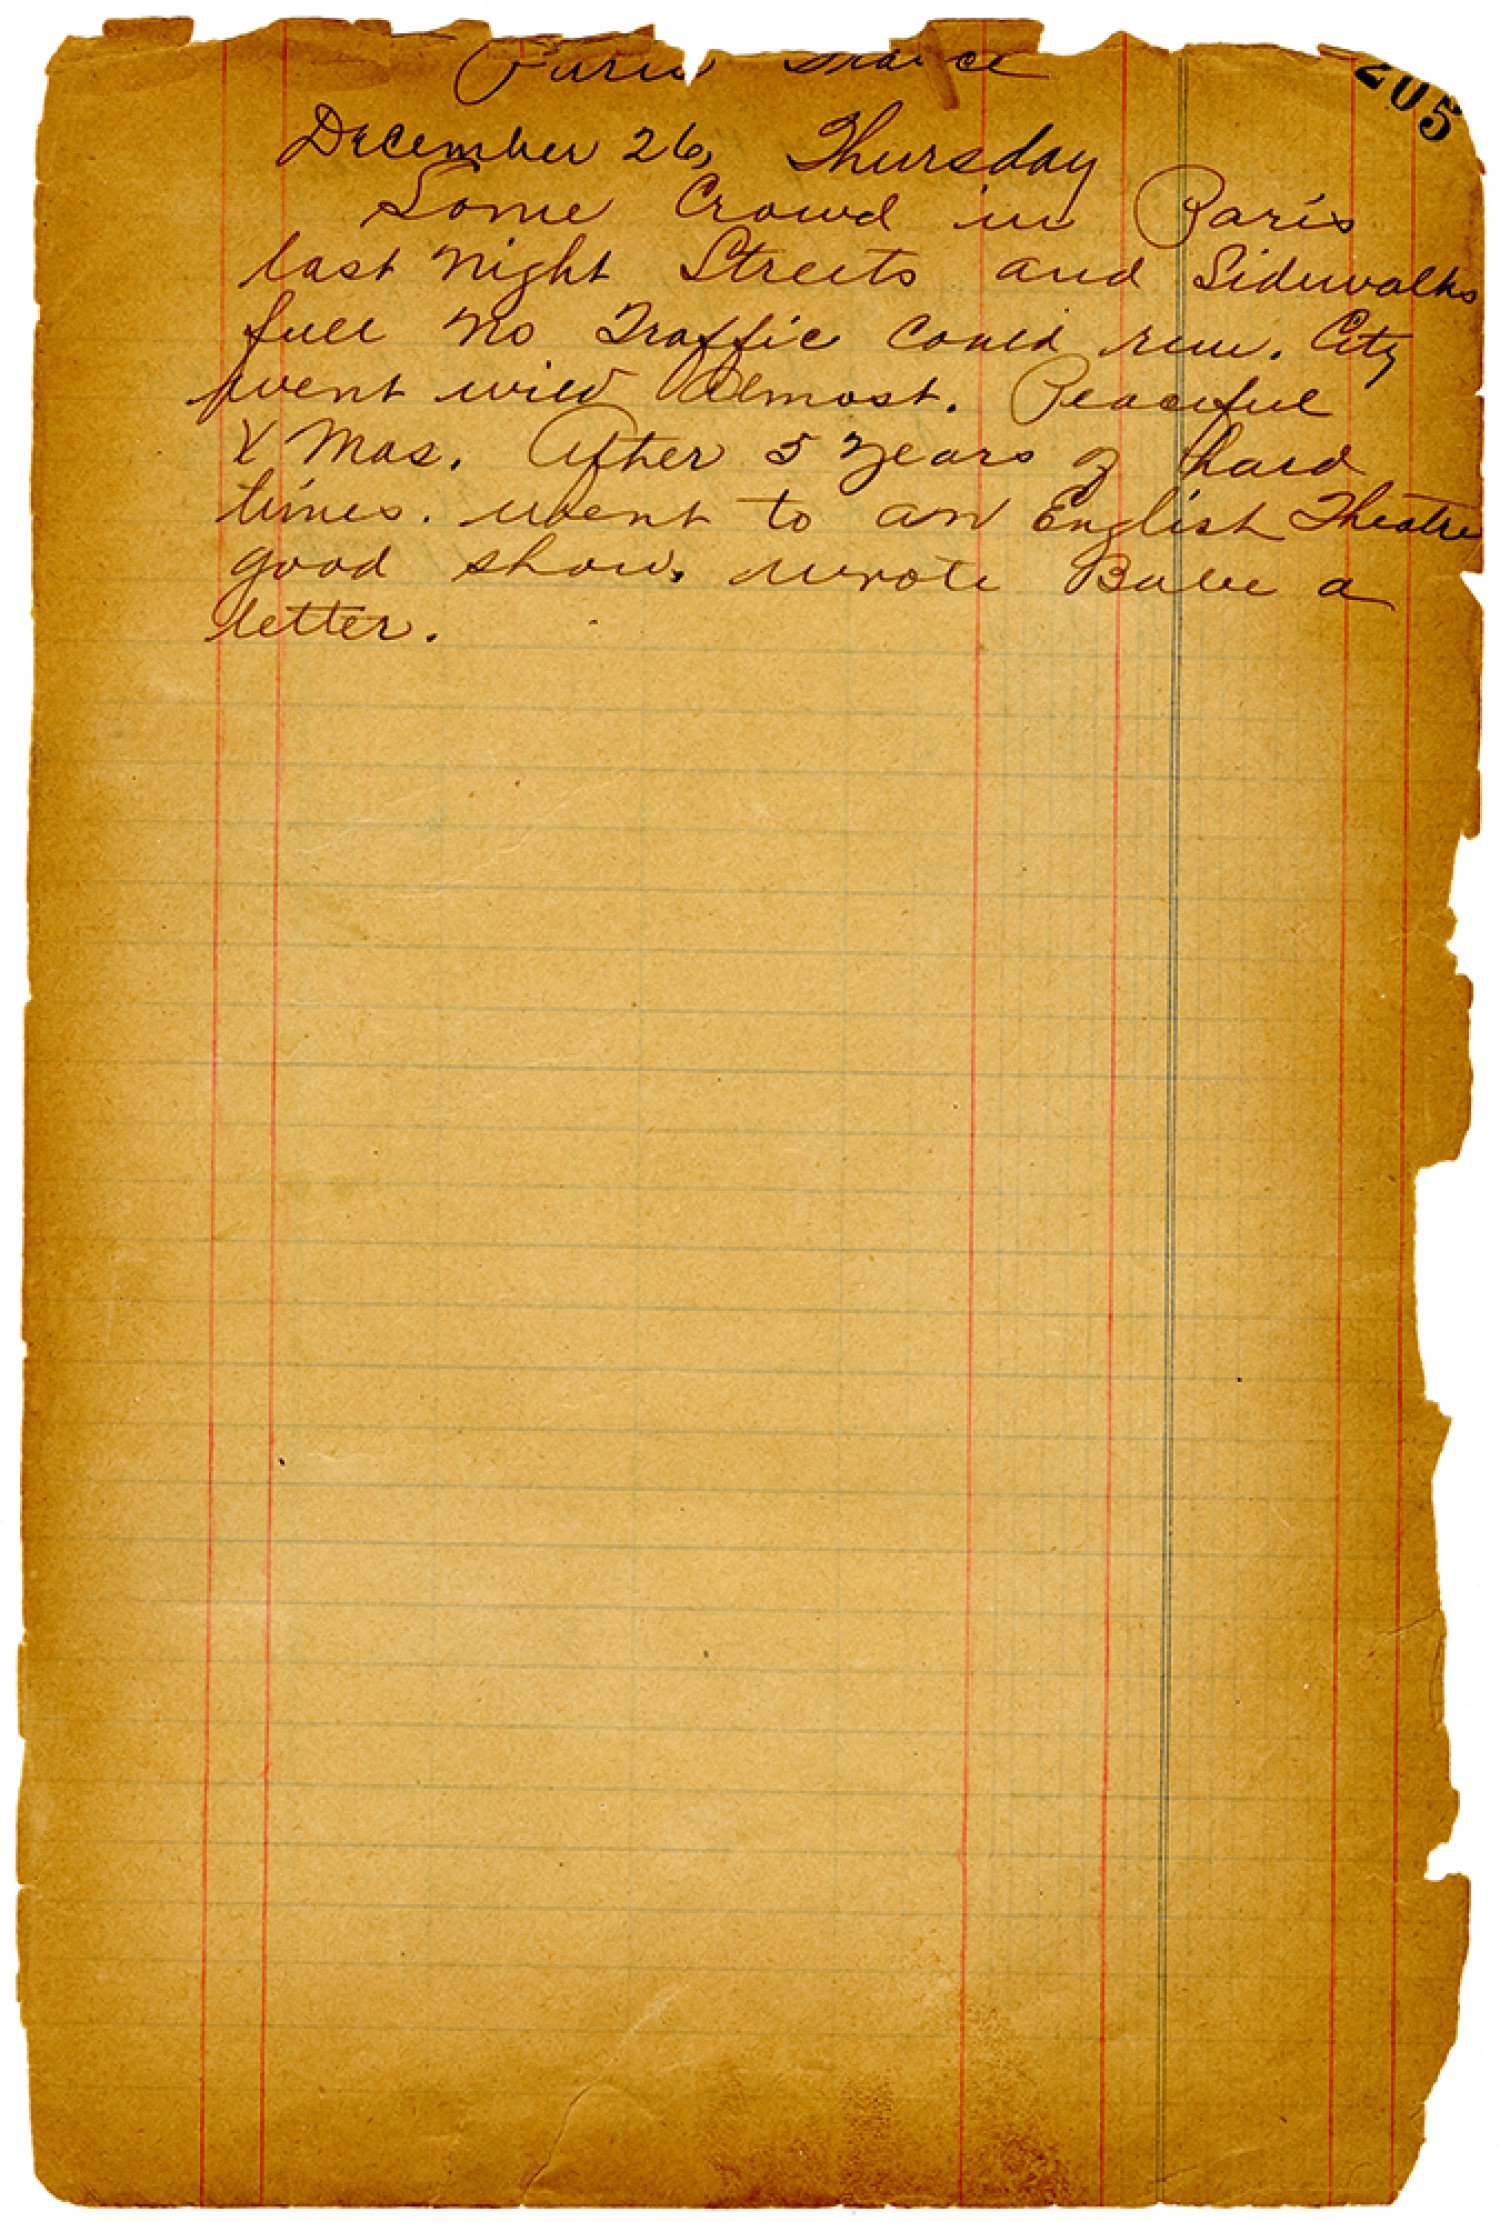 Paris France
205
December 26, Thursday
Some Crowd in Paris
last night Streets and Sidewalks
full No Traffic could run. City
went wild Almost. Peaceful
X Mas. After 5 years of hard
times. went to an English Theatre
good show. wrote Babe a
letter.